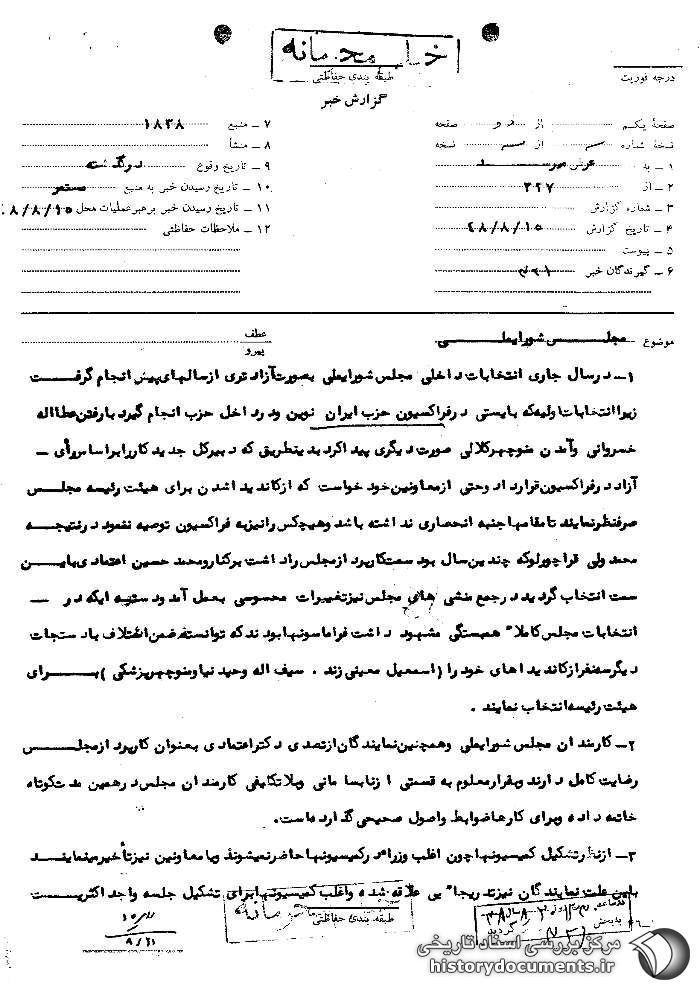 خیلی محرمانه
طبقه بندی حفاظتی
درجه فوریت
گزارش خبر
صفحهٔ یکم از دو صفحه
نسخهٔ شماره از نسخه
۱ ـ به عرض میرسد
۲ ـ از ۳۲۷
۳ ـ شماره گزارش
۴ ـ تاریخ گزارش ۴۸/۸/۱۵
۵ ـ پیوست
۶ ـ گیرندگان خبر
۷ ـ منبع ۱۸۳۸
۸ ـ منشأ
۹ ـ تاریخ وقوع درگذشته
۱۰ ـ تاریخ رسیدن خبر به منبع مستمر
۱۱ ـ تاریخ رسیدن خبر برهبر عملیات محل ۸/۸/۱۵
۱۲ ـ ملاحظات حفاظتی
موضوع مجلس شورایملی
عطف
پیرو
۱ـ در سال جاری انتخابات داخلی مجلس شورایملی بصورت آزادتری از سالهای پیش انجام گرفت
زیرا انتخابات اولیه که بایستی در فراکسیون حزب ایران نوین و در داخل حزب انجام گیرد با رفتن عطااله
خسروانی وآمدن منوچهر کلالی صورت دیگری پیدا کرد بدینطریق که دبیرکل جدید کار را براساس رأی ـ
آزاد در فراکسیون قرار داد وحتی از معاونین خود خواست که از کاندید اشدن برای هیئت رئیسه مجلس
صرفنظر نمایند تا مقامها جنبه انحصاری نداشته باشد وهیچکس را نیز به فراکسیون توصیه ننمود در نتیجه
محمد ولی قراچورلو که چندین سال بود سمت کارپرد از مجلس را داشت برکنار و محمد حسین اعتمادی باین
سمت انتخاب گردید در جمع منشی های مجلس نیز تغییرات محسوسی بعمل آمد و دسته ایکه در ـ
انتخابات مجلس کاملا" همبستگی مشهود داشت فراماسونها بودند که توانسته ضمن ائتلاف با دستجات
دیگر سه نفر از کاندیداهای خود را (اسمعیل معینی زند . سیف اله وحید نیا و منوچهر پزشکی ) برای
هیئت رئیسه انتخاب نمایند .
۲ـ کارمندان مجلس شورایملی وهمچنین نمایندگان از تصدی دکتر اعتمادی بعنوان کارپرد از مجلس
رضایت کامل دارند و بقرار معلوم به قسمتی از نابسامانی وبلاتکلیفی کارمندان مجلس در همین مدت کوتاه
خاتمه داده وبرای کارها ضوابط واصول صحیحی گذارده است.
۳ـ از نظر تشکیل کمیسیونها چون اغلب وزرا در کمیسیونها حاضر نمیشوند ویا معاونین نیز تأخیر مینمایند
باین علت نمایندگان نیز تدریجا" بی علاقه شده واغلب کمیسیونها برای تشکیل جلسه واجد اکثریت
محرمانه
طبقه بندی حفاظتی
مرکز بررسی اسناد تاریخی
historydocuments.ir